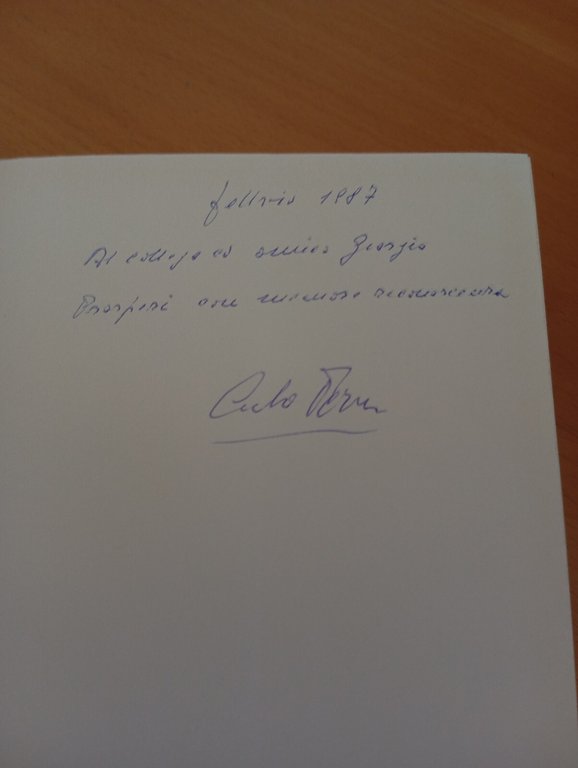 febbraio 1987
Al collega ed amico Giorgio
Prosperi con memore riconoscenza
Carlo